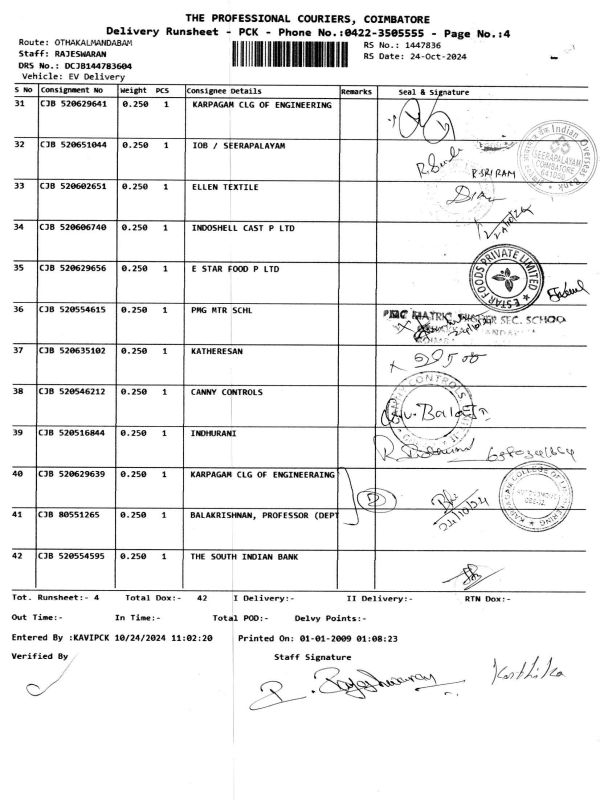 THE PROFESSIONAL COURIERS, COIMBATORE
Delivery Runsheet - PCK - Phone No.:0422-3505555 - Page No.:4
Route: OTHAKALMANDABAM RS No.: 1447836
Staff: RAJESWARAN RS Date: 24-Oct-2024
DRS No.: DCJB144783604
Vehicle: EV Delivery
S No Consignment No Weight PCS Consignee Details Remarks Seal & Signature
31 CJB 520629641 0.250 1 KARPAGAM CLG OF ENGINEERING
32 CJB 520651044 0.250 1 IOB / SEERAPALAYAM
R SRIRAM
Indian Overseas Bank
SEERAPALAYAM
COIMBATORE
33 CJB 520602651 0.250 1 ELLEN TEXTILE
34 CJB 520606740 0.250 1 INDOSHELL CAST P LTD
35 CJB 520629656 0.250 1 E STAR FOOD P LTD
E STAR FOODS PRIVATE LIMITED
36 CJB 520554615 0.250 1 PMG MTR SCHL
PMG MATRIC HIGHER SEC. SCHOO
37 CJB 520635102 0.250 1 KATHERESAN
38 CJB 520546212 0.250 1 CANNY CONTROLS
CONTROLS
39 CJB 520516844 0.250 1 INDHURANI
40 CJB 520629639 0.250 1 KARPAGAM CLG OF ENGINEERAING
KARPAGAM COLLEGE OF ENGINEERING
24/10/24
41 CJB 80551265 0.250 1 BALAKRISHNAN, PROFESSOR (DEPT
42 CJB 520554595 0.250 1 THE SOUTH INDIAN BANK
Tot. Runsheet:- 4 Total Dox:- 42 I Delivery:- II Delivery:- RTN Dox:-
Out Time:- In Time:- Total POD:- Delvy Points:-
Entered By :KAVIPCK 10/24/2024 11:02:20 Printed On: 01-01-2009 01:08:23
Verified By Staff Signature
Karthika